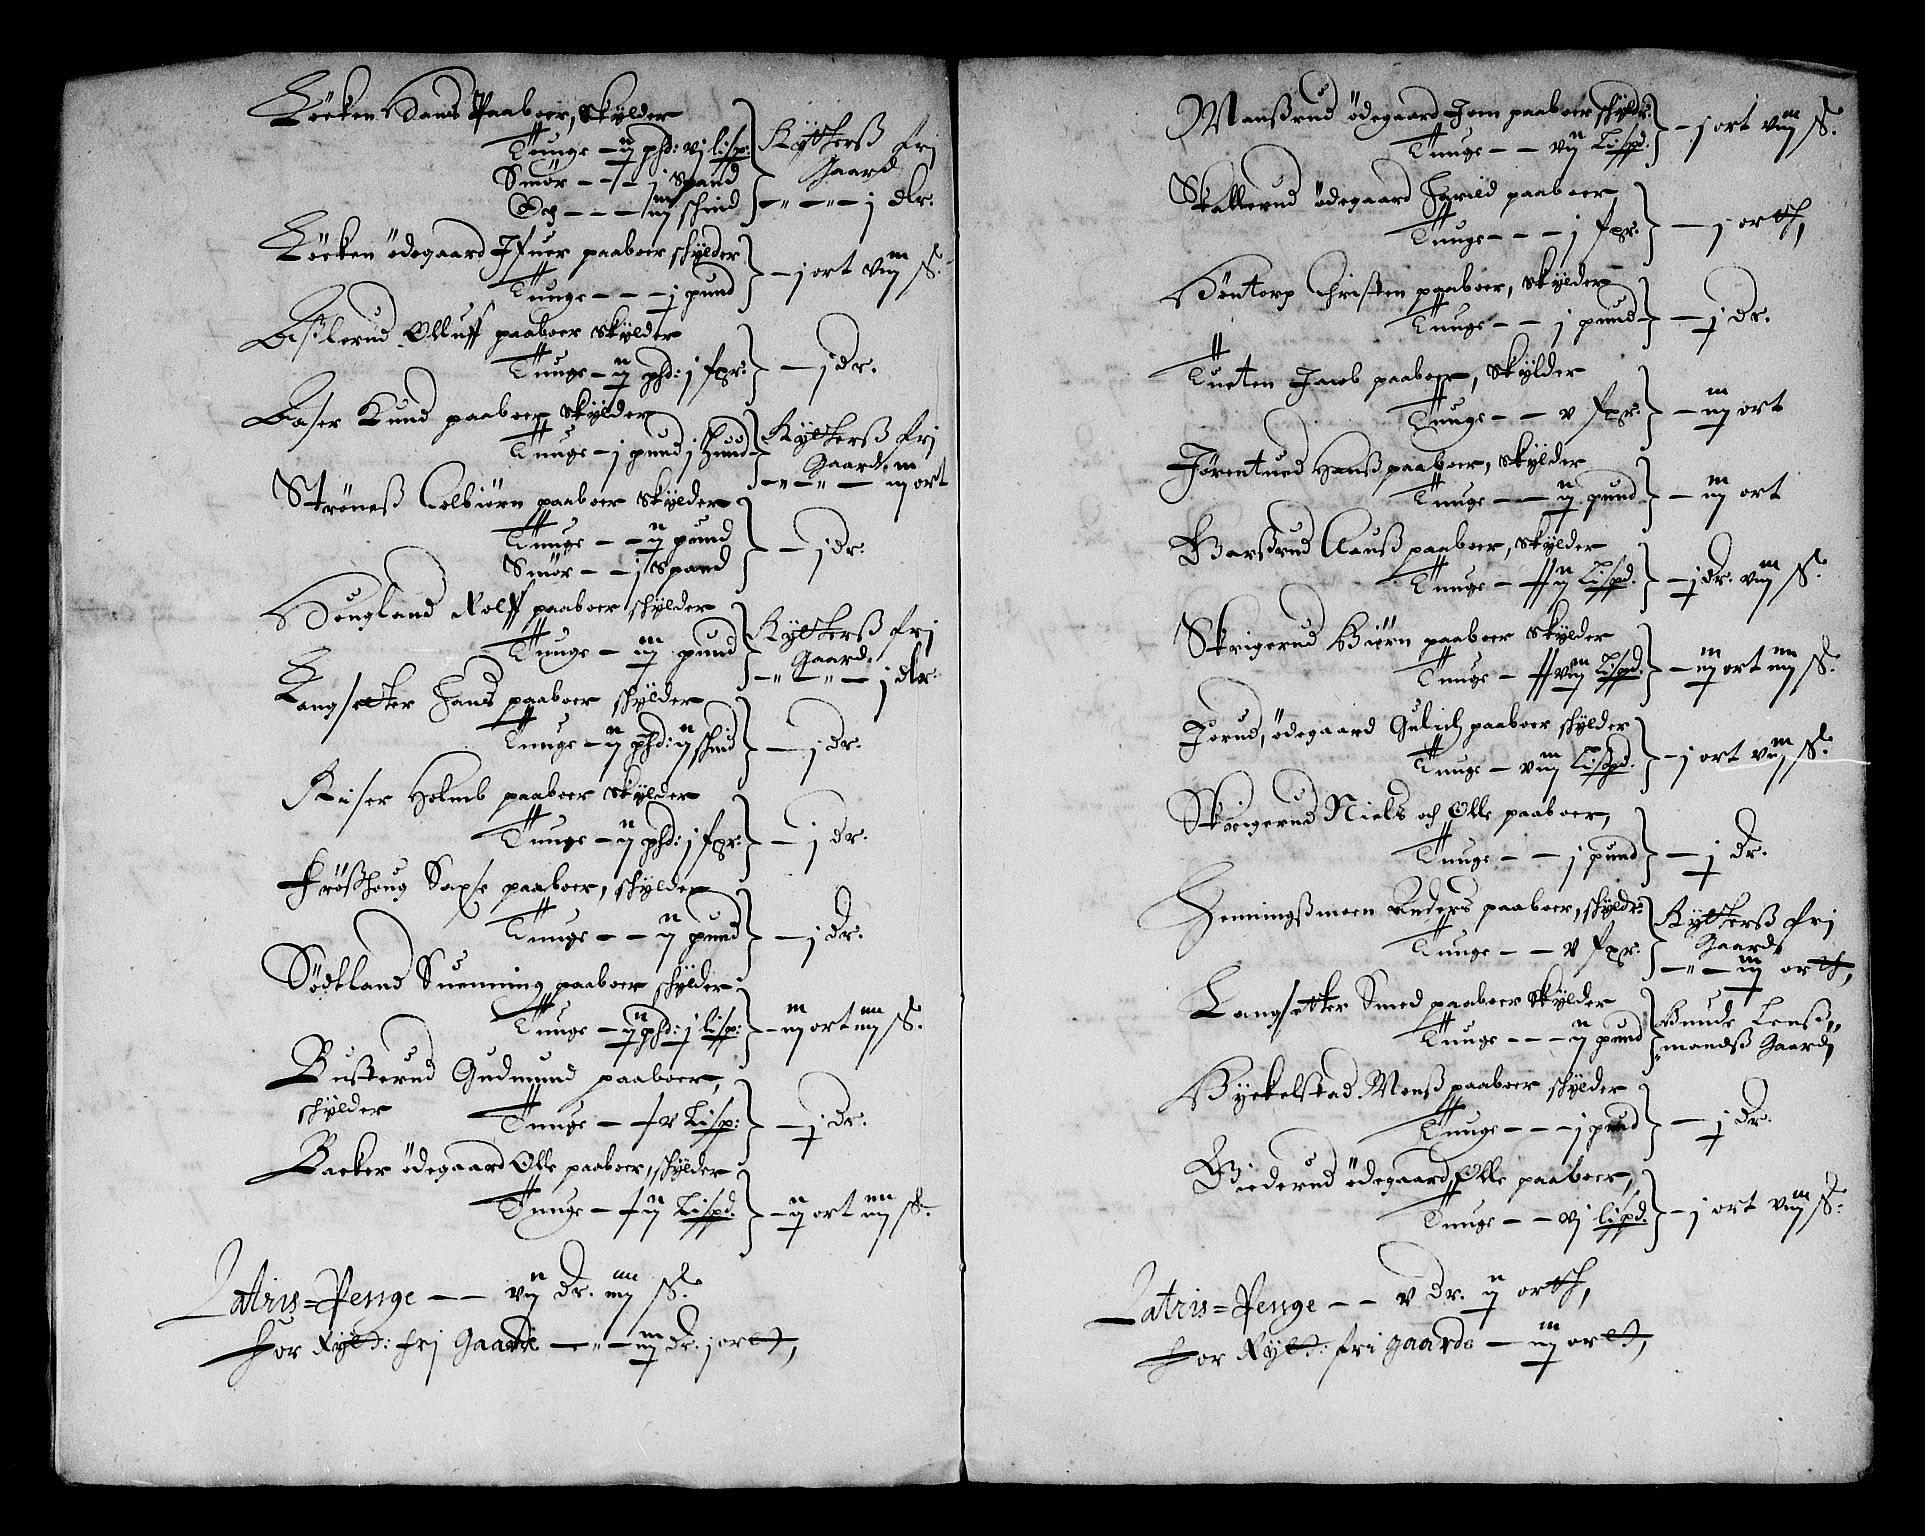 Löeken Hans Paaboer, skylder
Tunge - ij phd: vj lisp:
Smör - - - j spand
Och - - - iij schind
Rytterß fri
Gaard
- " - " - j dlr.
Löeken ödegaard Ifuer paaboer skylder
Tunge - - - j pund - j ort viij ß.
Aßlerud Olluff paaboer skylder
Tunge - ij phd: j fpr: - j dr.
Aaser Knud paaboer skylder
Tunge - j pund j
Rytterß fri
Gaard.
- " - " - iij ort
Ströneß Colbiörn paaboer skylder
Tunge - - ij pund
Smör - - j spand - j dr:
Hougland Rolff paaboer skylder
Tunge - iij pund
Rytterß fri
Gaard.
- " - " - j dlr.
Langsetter Hans paaboer skylder
Tunge - ij phd: ij schind - j dr.
Riser Holmb paaboer skylder
Tunge - ij phd: j fpr: - j dr.
Frößhoug Saxe paaboer, skylder
Tunge - - ij pund - j dr.
Södtland Suenning paaboer skylder
Tunge - ij phd: j lisp: - iij ort iiij ß.
Bußterud Gudmund paaboer,
skylder Tunge - v Lisp: - j dr.
Backer ödegaard Olle paaboer, skylder
Tunge - ij Lispd. - ij ort iiij ß.
Latris=Penge - - vij dr. iiij ß.
For Rytt: frj Gaarde - " - iij dr. j ortt,
Manßrud ödegaard Jon paaboer skyldr:
Tunge - - vij Lispd. - j ort viij ß.
Skallerud ödegaard Harild paaboer,
Tunge - - - j fpr. - j orth,
Höntorp Christen paaboer, skylder
Tunge - - j pund - j dr.
Tueten Jacob paaboer, skylder
Tunge - - v fpr. - iij ort
Jörentued Hanß paaboer, skylder
Tunge - - ij pund - iij ort
Barßrud Clauß paaboer, skylder
Tunge - ij Lispd. - j dr. viij ß.
Skrigerud Biörn paaboer skylder
Tunge - viij Lispd. - iij ort iiij ß.
Jorud, ödegaard Gulich paaboer skylder
Tunge - viij Lispd. - j ort viij ß.
Skrigerud Niels och Olle paaboer,
Tunge - - j pund - j dr.
Henningßmoen Anders paaboer, skyldr:
Tunge - - v fpr.
Rytterß fri
Gaard
- " - iij orth,
Langsetter Smed paaboer skylder
Tunge - - - ij pund
Bunde Lenß"
mandß Gaard
Byckelstad Monß paaboer skylder
Tunge - - - j pund - j dr.
Biederud ödegaard, Olle paaboer,
Tunge - - vj lispd. - j ort viij ß.
Latris=Penge - - v dr. ij orth,
For Rytt: fri gaarde - iij ortt,